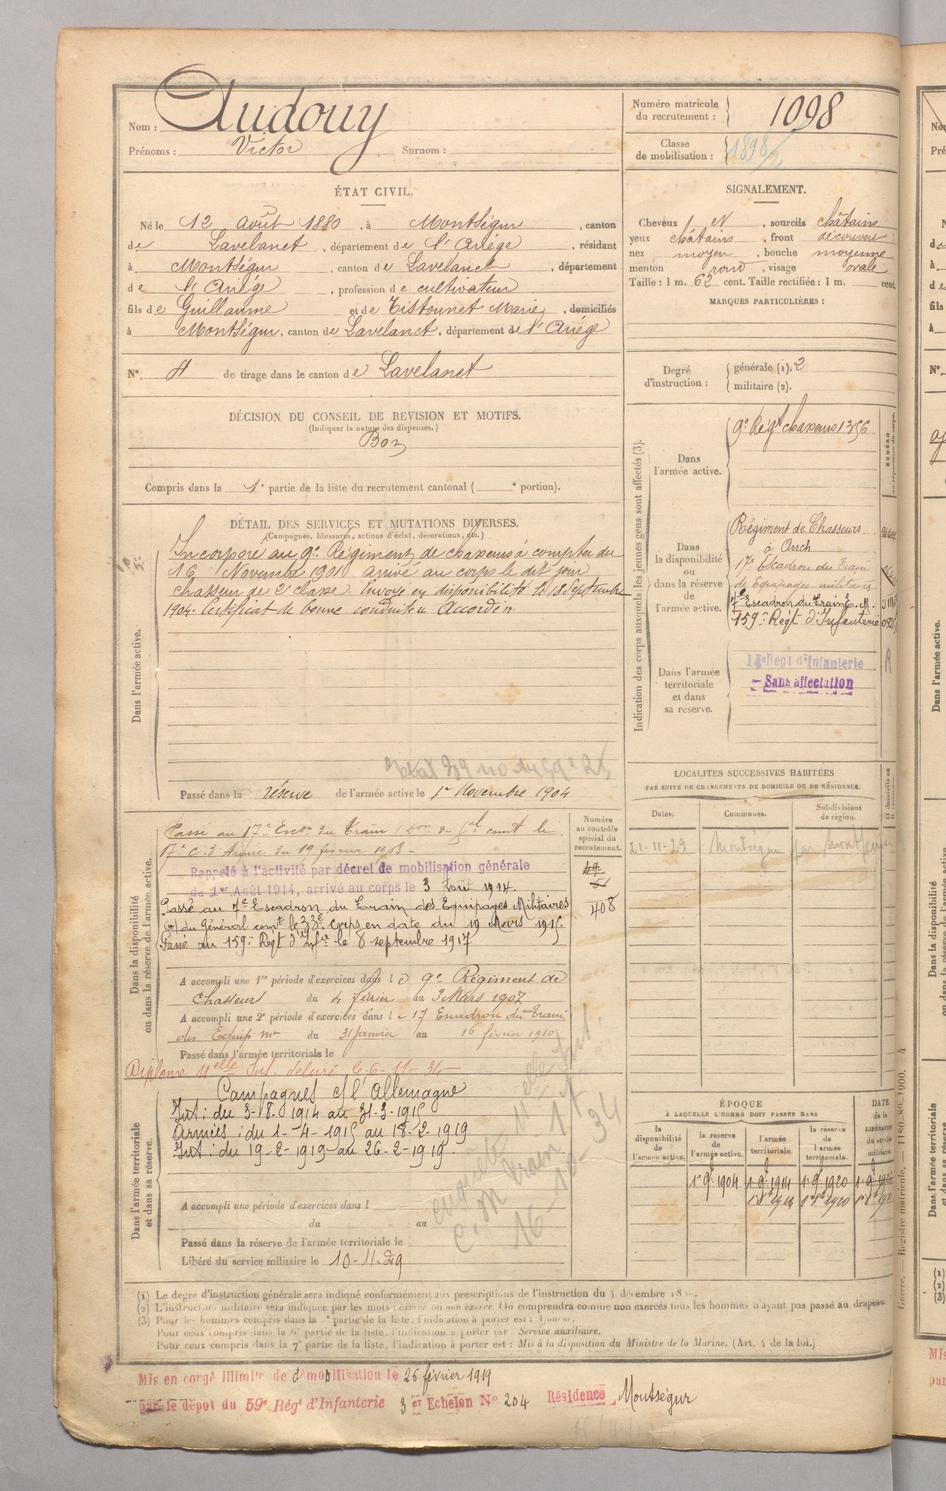 Nom : Audouy
Prénoms : Victor Surnom :
Numéro matricule du recrutement : 1098
Classe de mobilisation : 1898
ÉTAT CIVIL.
Né le 12 Août 1880, à Montségur, canton
de Lavelanet, département de l'Ariège, résidant
à Montségur, canton de Lavelanet, département
de l'Ariège, profession de cultivateur
fils de Guillaume et de Tistounet Marie, domiciliés
à Montségur, canton de Lavelanet, département de l'Ariège
N° 4 de tirage dans le canton de Lavelanet
SIGNALEMENT.
Cheveux N, sourcils châtains
yeux châtains, front découvert
nez moyen, bouche moyenne
menton rond, visage ovale
Taille : 1 m. 62 cent. Taille rectifiée : 1 m. cent.
MARQUES PARTICULIÈRES :
Degré d'instruction : générale (1). 2
militaire (2).
DÉCISION DU CONSEIL DE REVISION ET MOTIFS.
(Indiquer la nature des dispenses.)
Bon
Compris dans la 1e partie de la liste du recrutement cantonal ( e portion).
DÉTAIL DES SERVICES ET MUTATIONS DIVERSES.
(Campagnes, blessures, actions d'éclat, décorations, etc.)
Dans l'armée active.
Incorporé au 9e Régiment de chasseurs à compter du
16 Novembre 1901 arrivé au corps le dit jour
chasseur de 2e classe. Envoyé en disponibilité le 18 Septembre
1904. Certificat de bonne conduite Accordé
Passé dans la réserve de l'armée active le 1er Novembre 1904
Indication des corps auxquels les jeunes gens sont affectés (3).
Dans l'armée active.
9e Régt chasseurs 1356
Dans la disponibilité ou dans la réserve de l'armée active.
Régiment de Chasseurs
à Auch
17e Escadron du Train
des Equipages militaires
7e Escadron du Train E. M.
159e Régt d'Infanterie
Dans l'armée territoriale et dans sa réserve.
Régt d'Infanterie
Sans affectation
LOCALITÉS SUCCESSIVES HABITÉES
PAR SUITE DE CHANGEMENTS DE DOMICILE OU DE RÉSIDENCE.
Dates. Communes. Subdivisions de région.
21-11-29 Montségur
Numéro au contrôle spécial du recrutement.
408
Dans la disponibilité ou dans la réserve de l'armée active.
Passé au 17e Escon du Train
17e C. d'Armée du 19 février 1908
Rappelé à l'activité par décret de mobilisation générale
du 1er Août 1914, arrivé au corps le 3 Août 1914.
Passé au 7e Escadron du Train des Equipages Militaires
du Général comt le 33e corps en date du 19 Mars 1915.
Passé au 159e Régt d'Infie le 8 septembre 1917
A accompli une 1re période d'exercices dans le 9e Régiment de
Chasseurs du 4 février au 3 Mars 1907
A accompli une 2e période d'exercices dans le 17 Escadron du Train
des Equip. mres du 31 janvier au 16 février 1910
Passé dans l'armée territoriale le
Diplome
Dans l'armée territoriale et dans sa réserve.
Campagnes c/ l'Allemagne
Int : du 3-8-1914 au 31-3-1915
Armées : du 1-4-1915 au 18-2-1919
Int : du 19-2-1919 au 26-2-1919
A accompli une période d'exercices dans l
du au
Passé dans la réserve de l'armée territoriale le
Libéré du service militaire le 10-11-29
ÉPOQUE
À LAQUELLE L'HOMME DOIT PASSER DANS
la disponibilité de l'armée active. la réserve de l'armée active. l'armée territoriale. la réserve de l'armée territoriale. DATE de la LIBÉRATION du service militaire.
1 9e 1904 1 9e 1914 1 9e 1920
(1) Le degré d'instruction générale sera indiqué conformément aux prescriptions de l'instruction du 4 décembre
(2) L'instruction militaire sera indiquée par les mots : exercé ou non exercé. On comprendra comme non exercés tous les hommes n'ayant pas passé au drapeau.
(3) Pour les hommes compris dans la partie de la liste, l'indication à porter est :
Pour ceux compris dans la 6e partie de la liste, l'indication à porter est : Service auxiliaire.
Pour ceux compris dans la 7e partie de la liste, l'indication à porter est : Mis à la disposition du Ministre de la Marine. (Art. 4 de la loi.)
Mis en congé illimité de démobilisation le 26 février 1919
par le dépôt du 59e Régt d'Infanterie 3e Echelon N° 204 Résidence Montségur